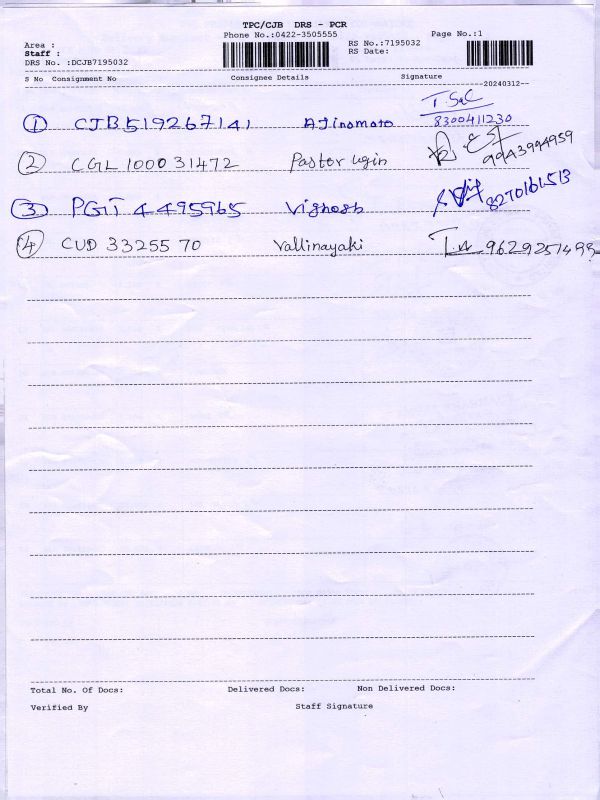 TPC/CJB DRS - PCR
Phone No.:0422-3505555
Page No.:1
Area :
RS No.:7195032
Staff :
RS Date:
DRS No. :DCJB7195032
S No Consignment No Consignee Details Signature
--20240312--
1 CJB519267141 Ajinomoto 8300411230
2 CGL 100031472 Pastor 9943944959
3 PGT 44495965 Vignesh 8270161513
4 CUD 3325570 Vallinayaki 9629251493
Total No. Of Docs: Delivered Docs: Non Delivered Docs:
Verified By Staff Signature